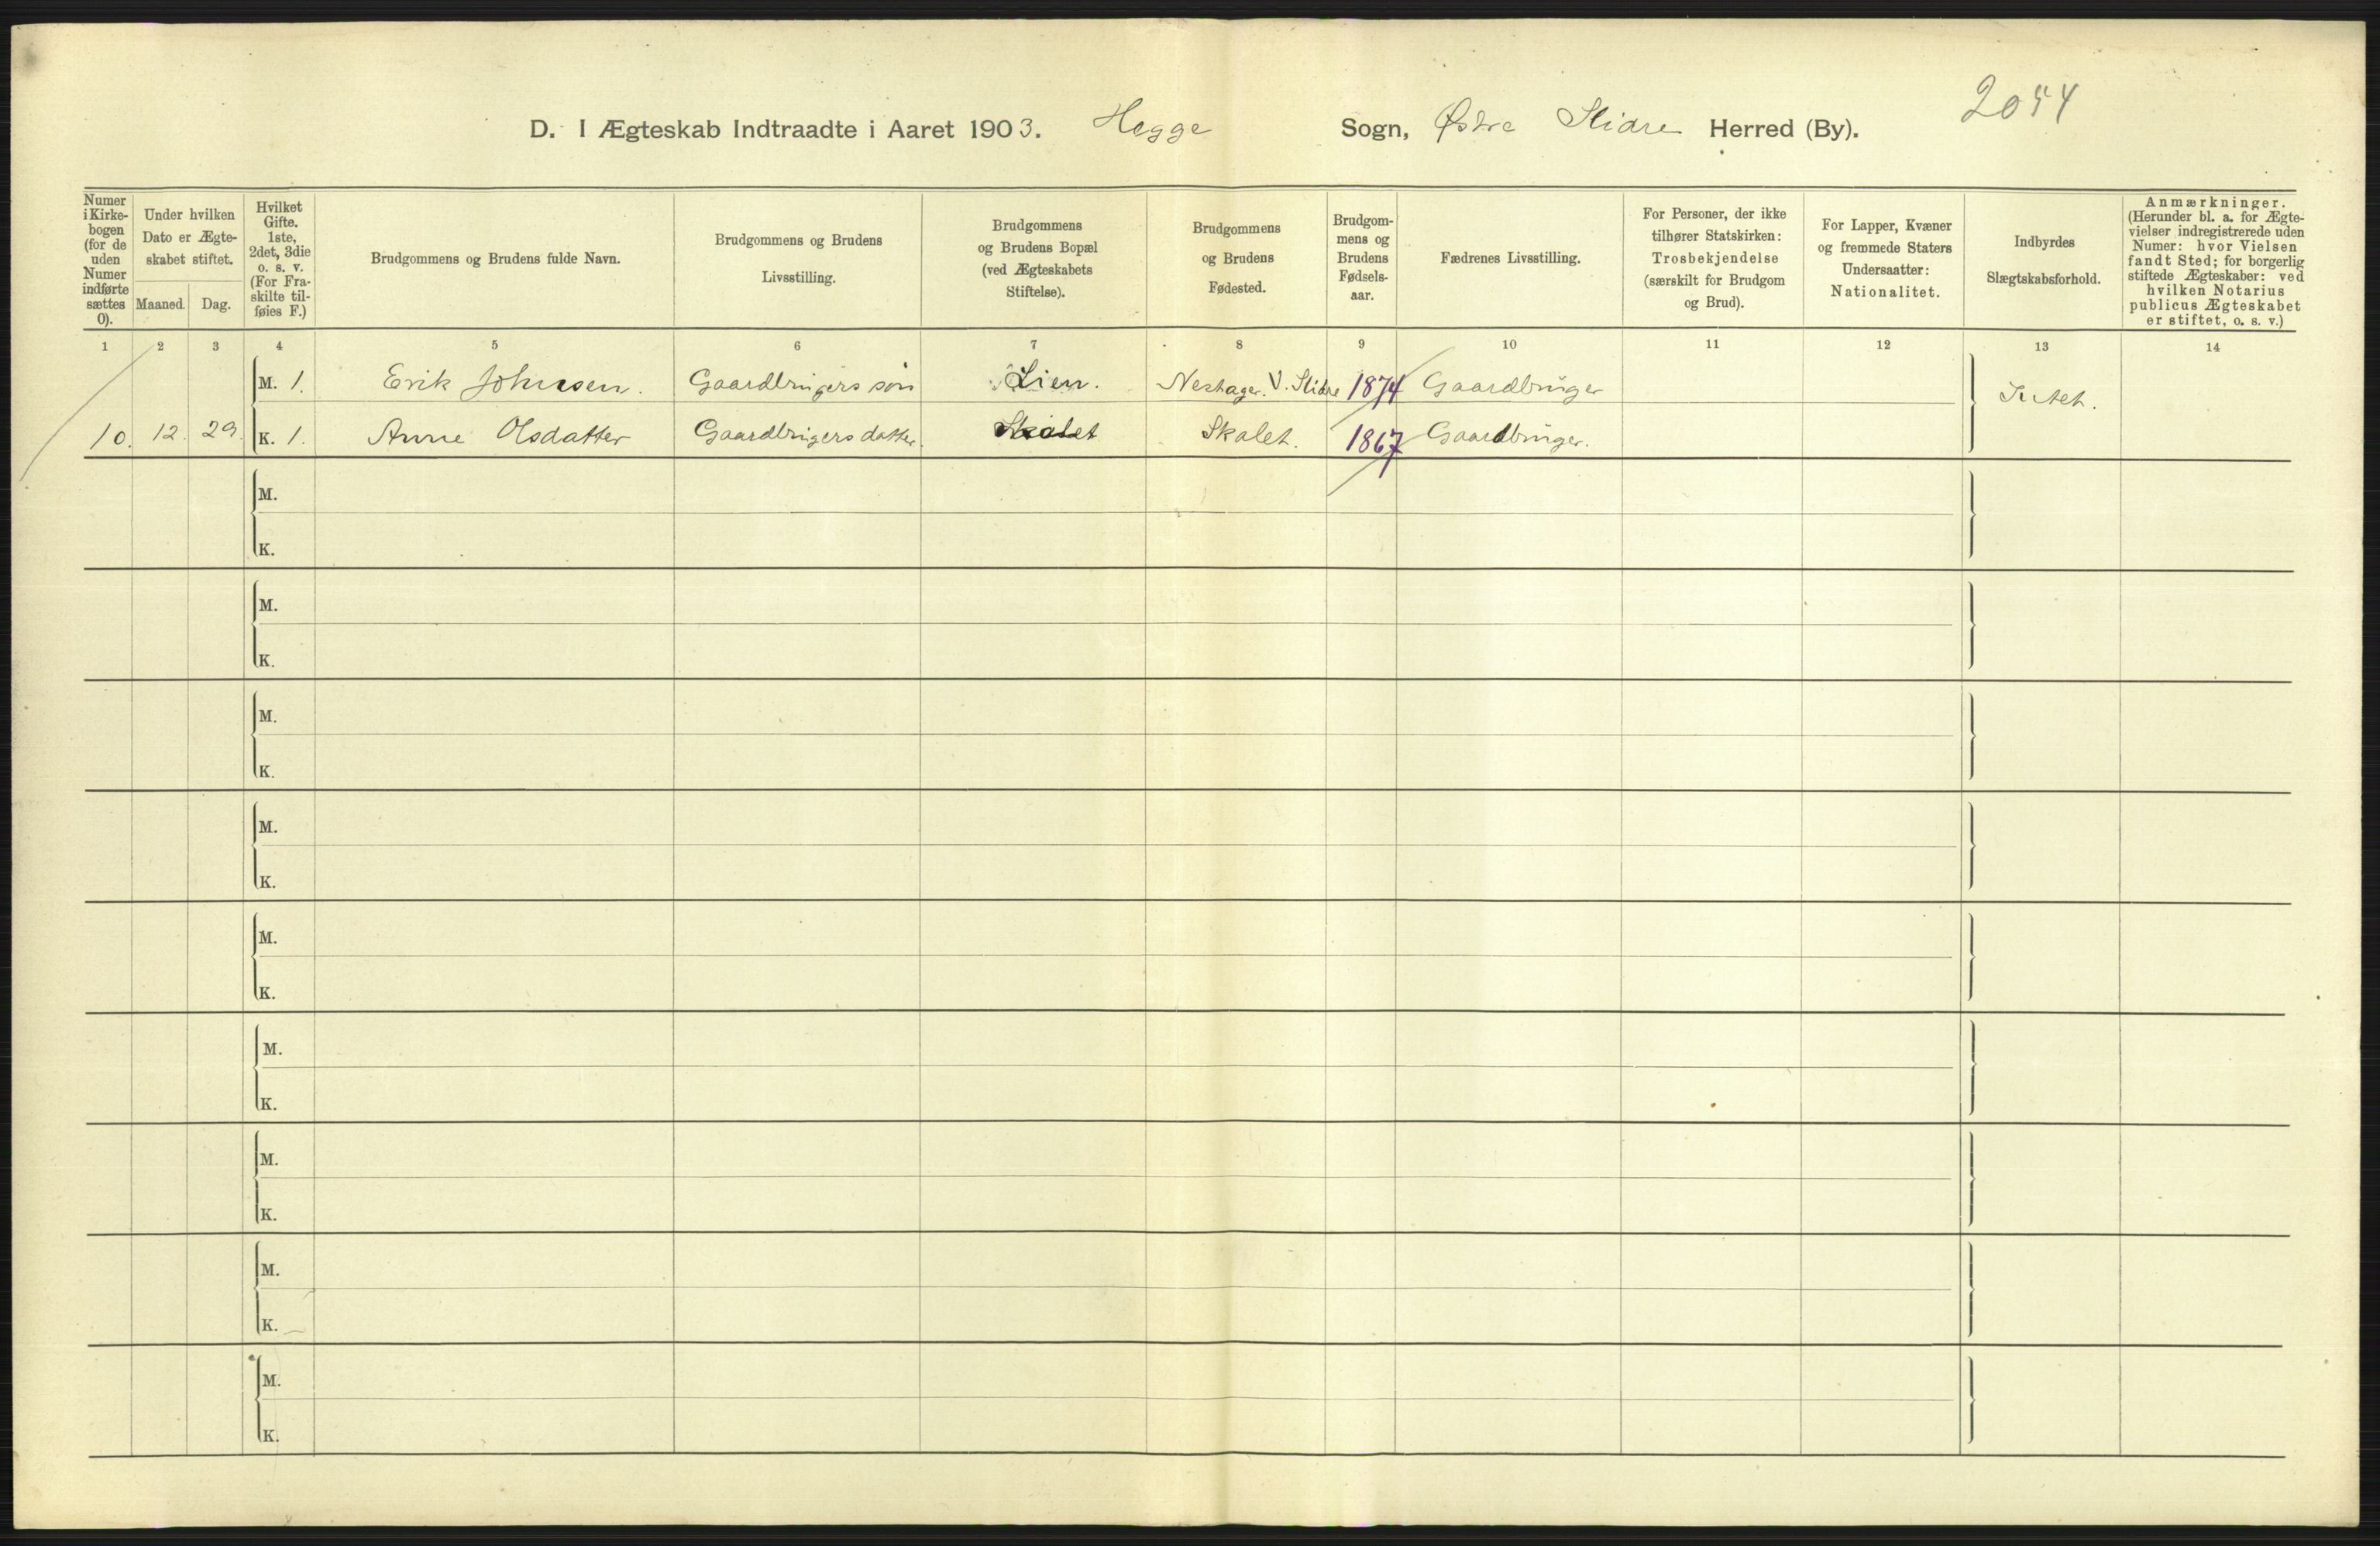 2054
D. I Ægteskab Indtraadte i Aaret 1903. Hegge Sogn, Østre Slidre Herred (By).
Numer i Kirke-bogen (for de uden Numer indførte sættes 0).
Under hvilken Dato er Ægte-skabet stiftet.
Maaned. Dag.
Hvilket Gifte. 1ste, 2det, 3die o. s. v. (For Fra-skilte til-føies F.)
Brudgommens og Brudens fulde Navn.
Brudgommens og Brudens Livsstilling.
Brudgommens og Brudens Bopæl (ved Ægteskabets Stiftelse).
Brudgommens og Brudens Fødested.
Brudgom-mens og Brudens Fødsels-aar.
Fædrenes Livsstilling.
For Personer, der ikke tilhører Statskirken: Trosbekjendelse (særskilt for Brudgom og Brud).
For Lapper, Kvæner og fremmede Staters Undersaatter: Nationalitet.
Indbyrdes Slægtskabsforhold.
Anmærkninger. (Herunder bl. a. for Ægte-vielser indregistrerede uden Numer: hvor Vielsen fandt Sted; for borgerlig stiftede Ægteskaber: ved hvilken Notarius publicus Ægteskabet er stiftet, o. s. v.)
1 2 3 4 5 6 7 8 9 10 11 12 13 14
M. 1. Erik Johnsen. Gaardbrugers søn Lien. Neshagen. V. Slidre 1874 Gaardbruger
Intet.
10. 12. 29. K. 1. Anne Olsdatter Gaardbrugers datter. Skalet Skalet. 1867 Gaardbruger.
M.
K.
M.
K.
M.
K.
M.
K.
M.
K.
M.
K.
M.
K.
M.
K.
M.
K.